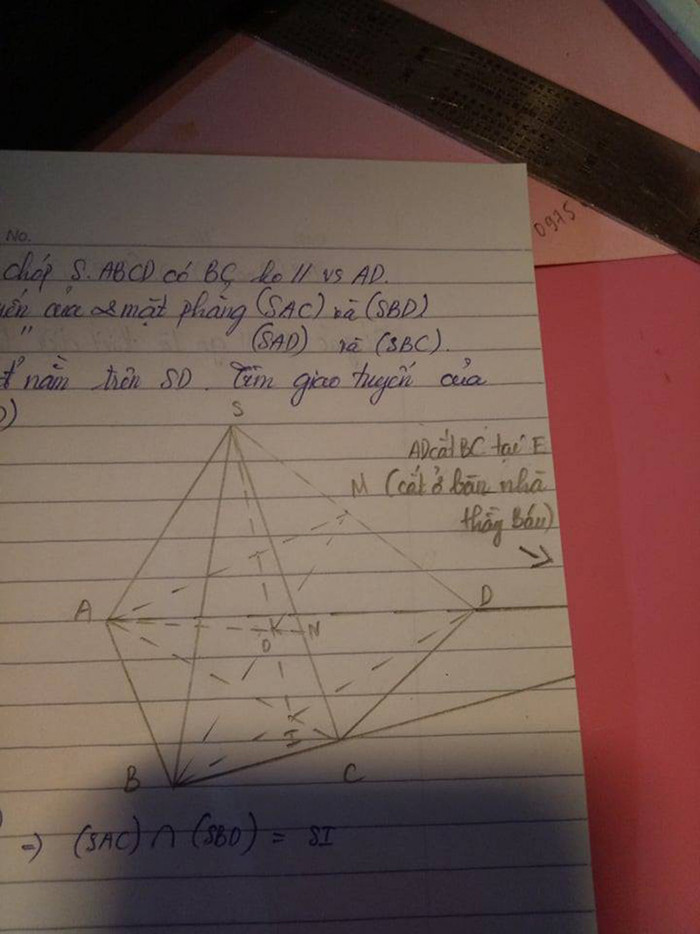 No.
chóp S.ABCD có BC ko // vs AD.
của 2 mặt phẳng (SAC) và (SBD)
" (SAD) và (SBC).
nằm trên SD. Tìm giao tuyến của
)
S
AD cắt BC tại E
M (cắt ở bàn nhà
thằng Báu)
A
D
K
N
O
I
B
C
=> (SAC) ∩ (SBD) = SI
0975